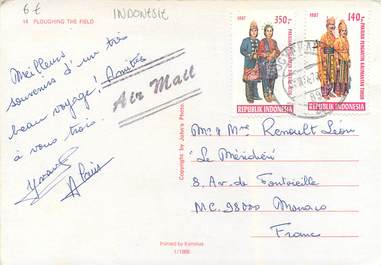 6€
INDONESIE
14 PLOUGHING THE FIELD
1987
350.-
1987
140.-
REPUBLIK INDONESIA
REPUBLIK INDONESIA
Meilleurs
souvenirs d'un très
beau voyage! Amitiés
à vous trois.
Alain
Air Mail
Copyrights by John's Photo.
Mr & Mme Renoult Léon
"Le Méridien"
8. Av. de Fontvieille
MC. 98000 Monaco
France
Printed by
1/1988